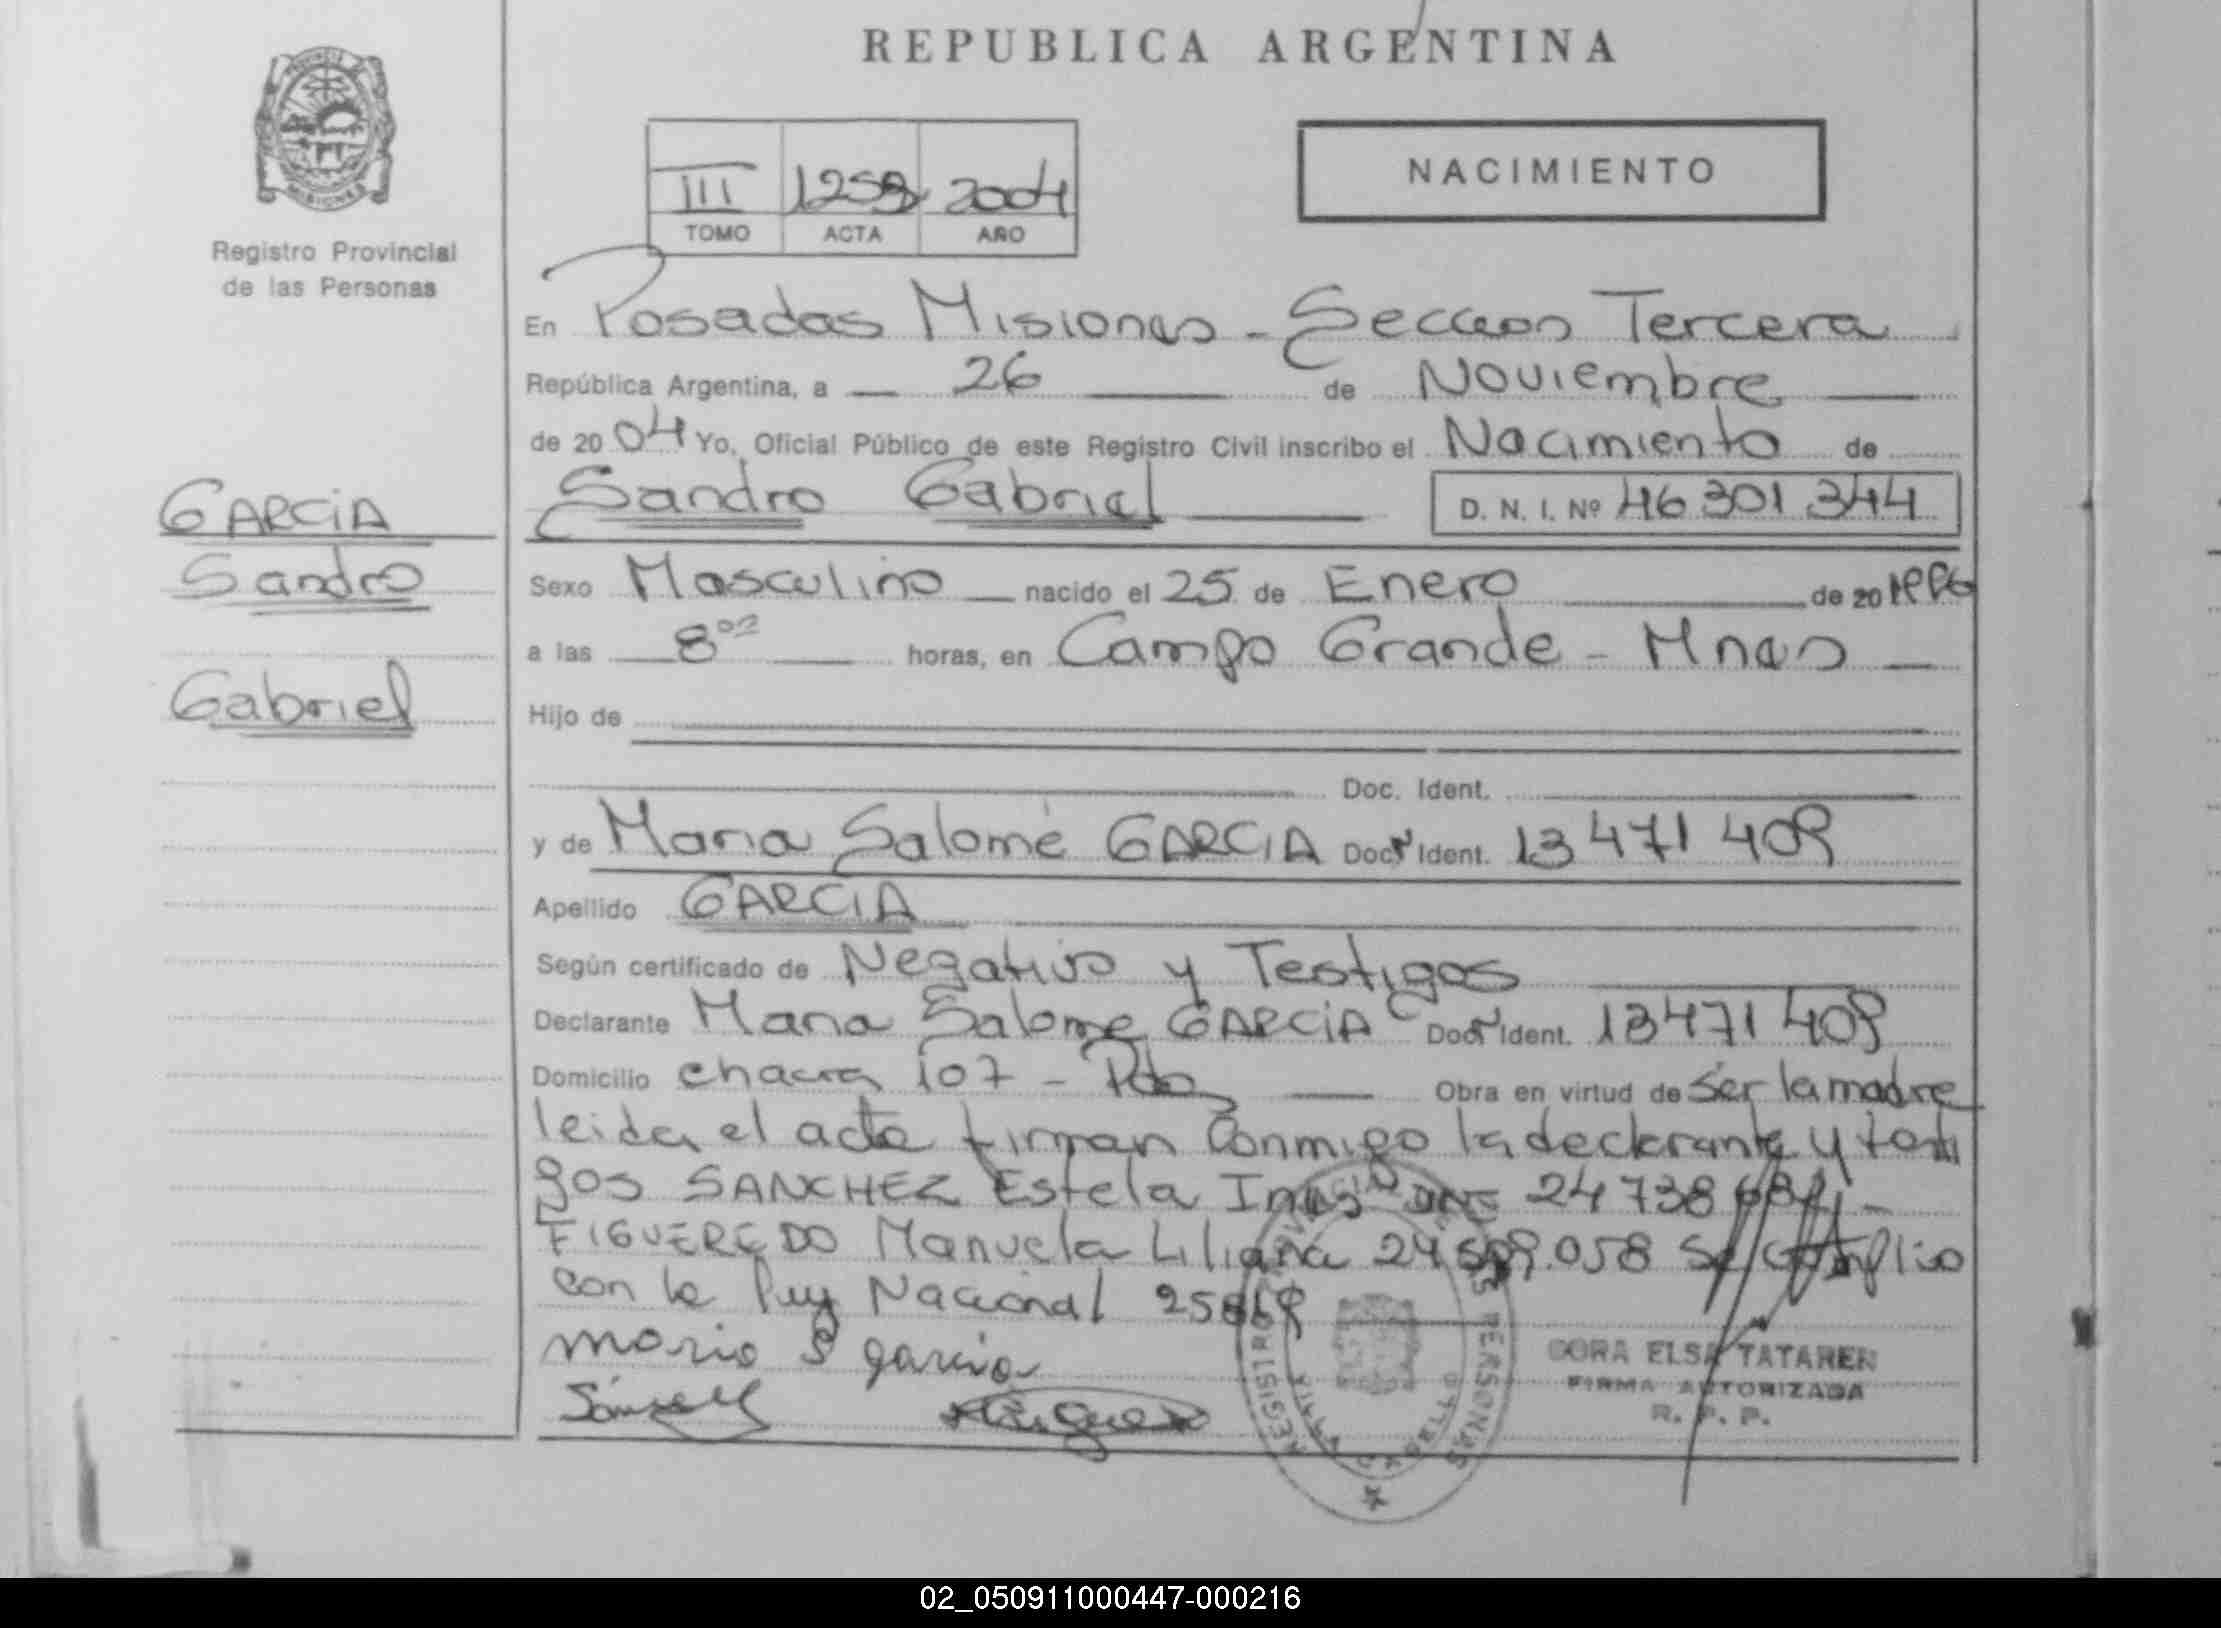 REPUBLICA ARGENTINA
PROVINCIA DE
MISIONES
Registro Provincial
de las Personas
III 1259 2004
TOMO ACTA AÑO
NACIMIENTO
En Posadas Misiones - Seccion Tercera
República Argentina, a 26 de Noviembre
de 2004 Yo, Oficial Público de este Registro Civil inscribo el Nacimiento de
Sandro Gabriel D. N. I. Nº 46 301 344
GARCIA
Sandro
Gabriel
Sexo Masculino nacido el 25 de Enero de 20 1996
a las 8 horas, en Campo Grande - Mnes
Hijo de
Doc. Ident.
y de Maria Salomé GARCIA Doc. Ident. 13 471 409
Apellido GARCIA
Según certificado de Negativo y Testigos
Declarante Maria Salome GARCIA Doc. Ident. 13471 409
Domicilio chacra 107 - Pdas Obra en virtud de ser la madre
leida el acta firman conmigo la declarante y testi
gos SANCHEZ Estela Ines DNI 24 738
FIGUEREDO Manuela Liliana 24 .058 se cumplio
con la Ley Nacional
maria S garcia
DORA ELSA TATAREN
FIRMA AUTORIZADA
R. P. P.
REGISTRO PROVINCIAL DE LAS PERSONAS
02_050911000447-000216